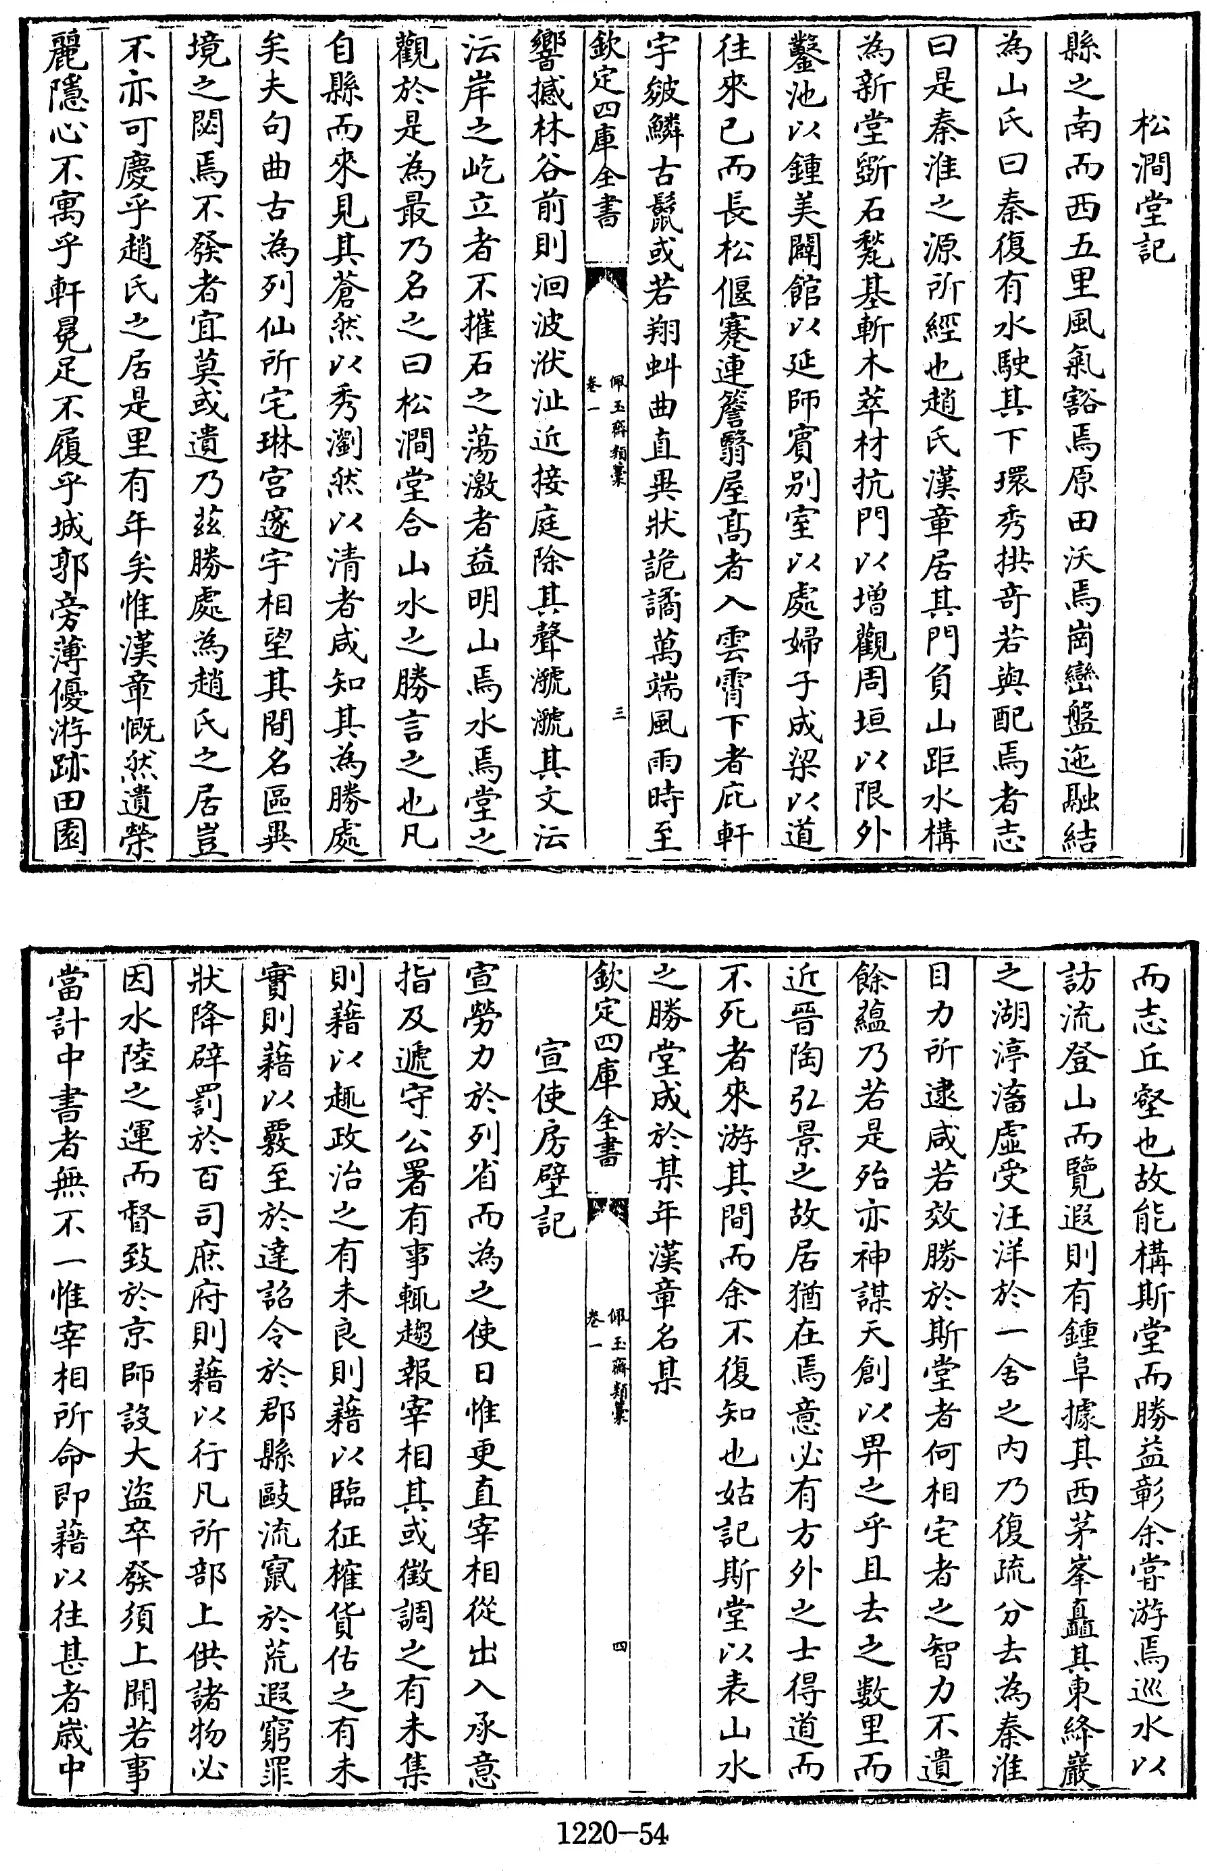 松澗堂記
縣之南而西五里風氣豁焉原田沃焉崗巒盤迤融結
為山氏曰秦復有水駛其下環秀拱奇若與配焉者志
曰是秦淮之源所經也趙氏漢章居其門負山距水構
為新堂斲石甃基斬木萃材抗門以增觀周垣以限外
鑿池以鍾美闢館以延師賓别室以處婦子成梁以道
往來已而長松偃蹇連簷翳屋髙者入雲霄下者庇軒
宇皴鱗古鬛或若翔虯曲直異狀詭譎萬端風雨時至
欽定四庫全書
佩玉齋類藁
卷一
三
響撼林谷前則洄波洑沚近接庭除其聲㶁㶁其文沄
沄岸之屹立者不摧石之蕩激者益明山焉水焉堂之
觀於是為最乃名之曰松澗堂合山水之勝言之也凡
自縣而來見其蒼然以秀瀏然以清者咸知其為勝處
矣夫句曲古為列仙所宅琳宫邃宇相望其間名區異
境之閟焉不發者宜莫或遺乃兹勝處為趙氏之居豈
不亦可慶乎趙氏之居是里有年矣惟漢章慨然遺榮
麗隱心不寓乎軒冕足不履乎城郭旁薄優游跡田園
而志丘壑也故能構斯堂而勝益彰余嘗游焉巡水以
訪流登山而覽遐則有鍾阜據其西茅峯矗其東絳巖
之湖渟滀虚受汪洋於一舍之内乃復疏分去為秦淮
目力所逮咸若效勝於斯堂者何相宅者之智力不遺
餘藴乃若是殆亦神謀天創以畀之乎且去之數里而
近晉陶弘景之故居猶在焉意必有方外之士得道而
不死者來游其間而余不復知也姑記斯堂以表山水
之勝堂成於某年漢章名某
欽定四庫全書
佩玉齋類藁
卷一
四
宣使房壁記
宣勞力於列省而為之使日惟更直宰相從出入承意
指及遞守公署有事輒趨報宰相其或徵調之有未集
則藉以趣政治之有未良則藉以臨征榷貨估之有未
實則藉以覈至於達詔令於郡縣敺流竄於荒遐窮罪
狀降辟罰於百司庶府則藉以行凡所部上供諸物必
因水陸之運而督致於京師設大盜卒發須上聞若事
當計中書者無不一惟宰相所命即藉以往甚者歲中
1220-54